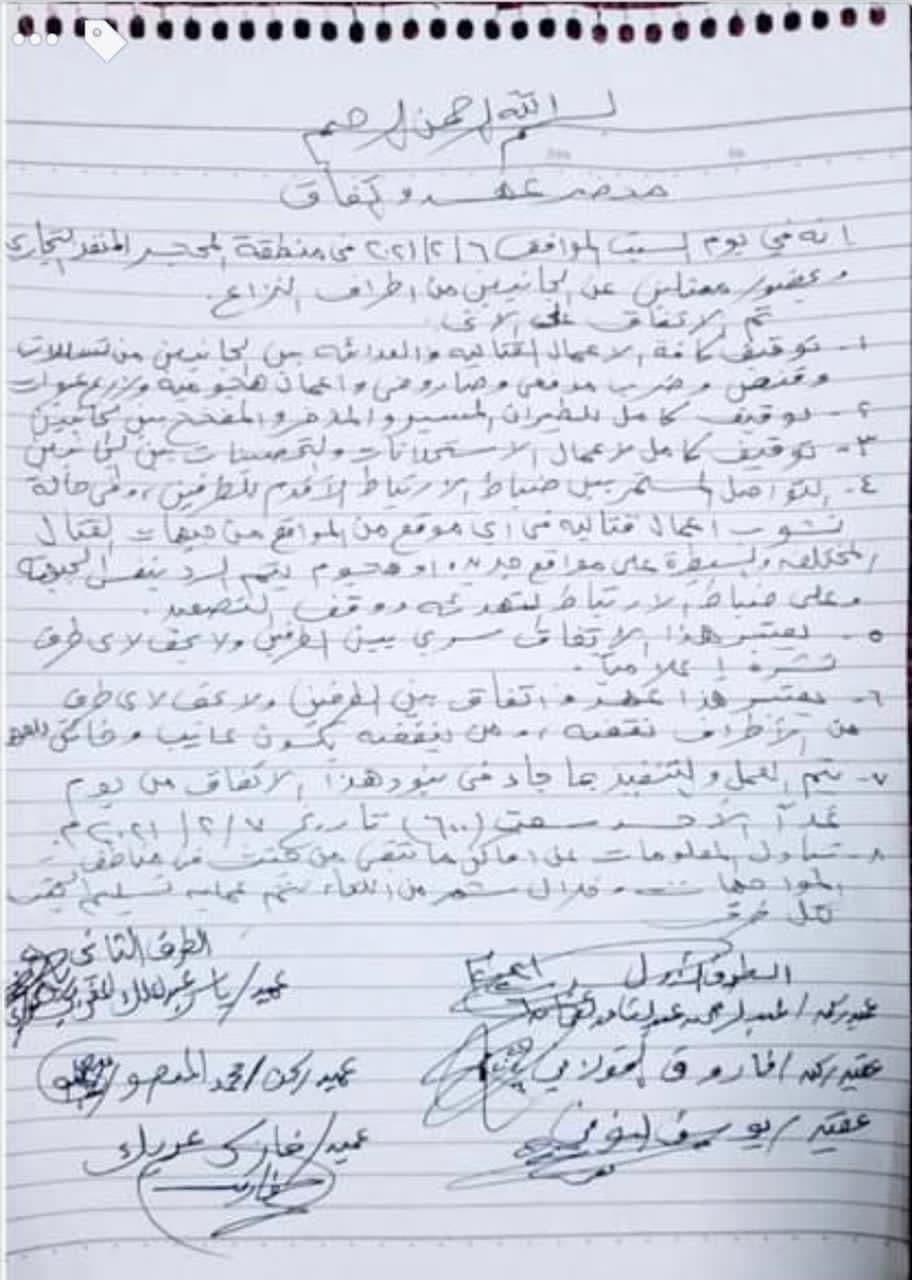 بسم الله الرحمن الرحيم
محضر عهد و إتفاق
إنه في يوم السبت الموافق ٢٠٢١/٢/٦ في منطقة المحجر المنفذ التجاري
وبحضور ممثلين عن الجانبين من اطراف النزاع.
تم الاتفاق على الاتي
١- توقيف كافة الاعمال القتالية والعدائيه بين الجانبين من تسللات
وقنص وضرب مدفعي وصاروخي واعمال هجوميه وزرع عبوات
٢- توقيف كامل للطيران المسير والمذخر والمفخخ بين الجانبين
٣- توقيف كامل لاعمال الاستحداثات والتحصينات بين الجانبين
٤- التواصل المستمر بين ضباط الارتباط الأقدم للطرفين، وفي حالة
نشوب اعمال قتاليه في اي موقع من المواقع من جبهات القتال
المختلفه والسيطرة على مواقع جديده او هجوم يتم الرد بنفس الجبهة
وعلى ضباط الارتباط التهدئه ووقف التصعيد.
٥- يعتبر هذا الاتفاق سري بين الطرفين ولا يحق لاي طرف
نشره إعلامياً.
٦- يعتبر هذا عهد و اتفاق بين الطرفين ولا يحق لاي طرف
من الأطراف نقضه، ومن ينقضه يكون عايب وخائن
٧- يتم العمل والتنفيذ بما جاء في بنود هذا الاتفاق من يوم
غداً الأحد سعت (٦٠٠) تاريخ ٢٠٢١/٢/٧م.
٨- تبادل المعلومات عن اماكن ما تبقى من جثث في مناطق
المواجهات وخلال شهر من اللقاء يتم عمليه تسليم الجثث
الطرف الثاني
عميد/ ياسر
عميد ركن/ محمد
عميد/
الطرف الأول
عميد ركن/ عبدالرحمن
عقيد ركن/ فاروق الخولاني
عقيد/ يوسف